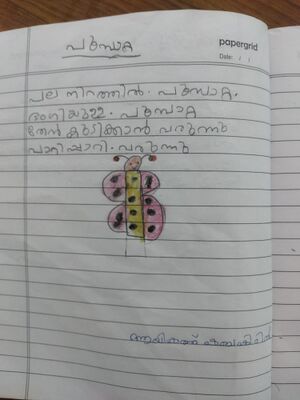 പൂമ്പാറ്റ
papergrid
Date: / /
പല നിറത്തിൽ. പൂമ്പാറ്റ.
ഭംഗിയുള്ള. പൂമ്പാറ്റ
തേൻ കുടിക്കാൻ വരുന്നു
പാറിപ്പാറി. വരുന്നു